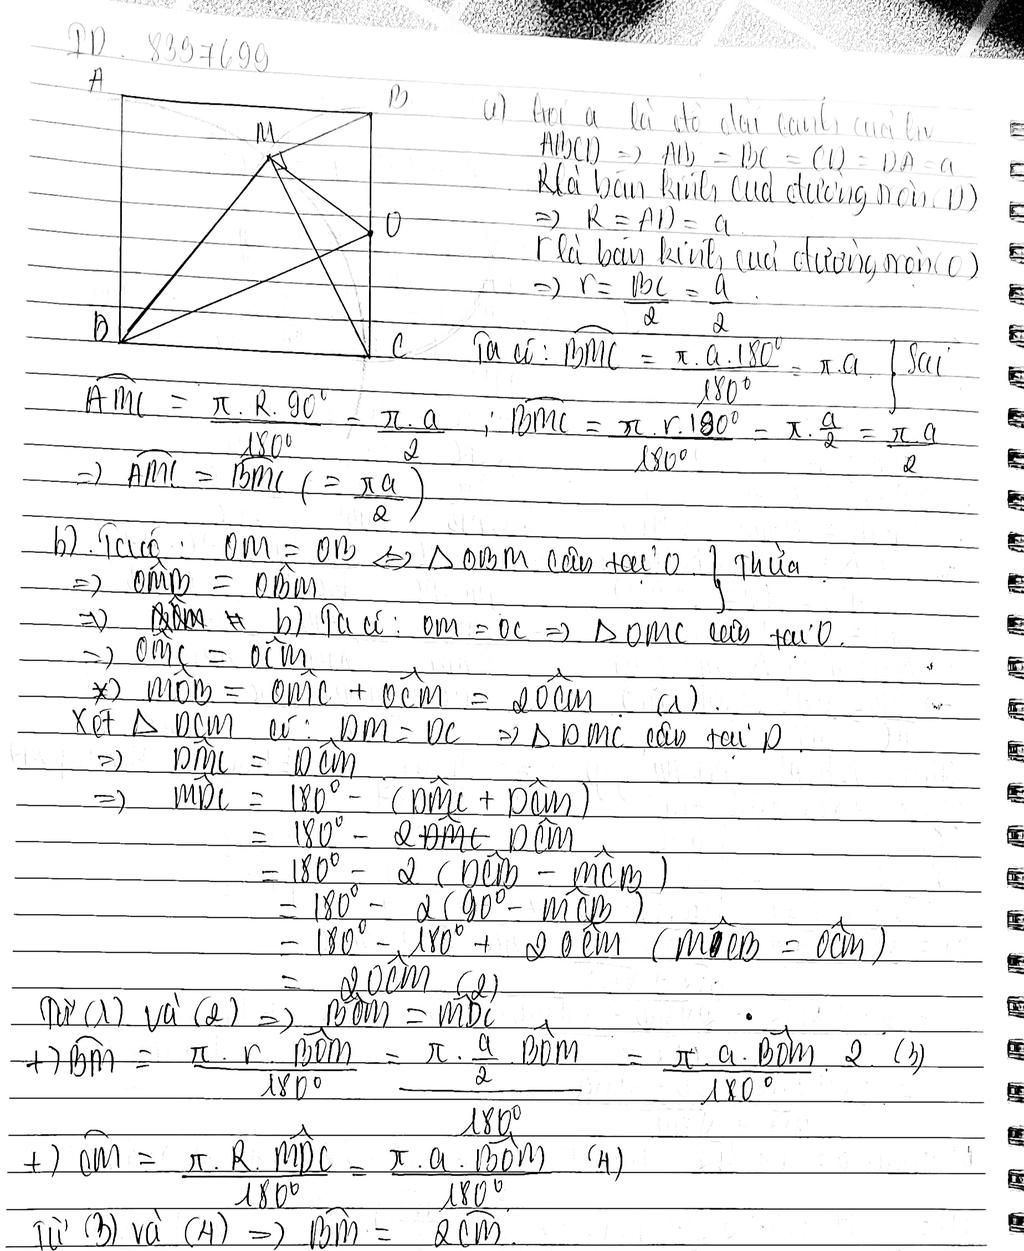 ID. 8397699
A
B
M
O
D
C
a) Gọi a là độ dài cạnh của hv
ABCD => AB = BC = CD = DA = a
R là bán kính của đường tròn (D)
=> R = AD = a
r là bán kính của đường tròn (O)
=> r = BC/2 = a/2.
Ta có: BMC = π.a.180°/180° = π.a. } Sai
AMC = π.R.90°/180° = π.a/2 ; BMC = π.r.180°/180° = π.a/2 = πa/2
=> AMC = BMC (= πa/2)
b). Ta có: OM = OB <=> Δ OBM cân tại O. } Thừa
=> OM̂B = OB̂M
=> b) Ta có: OM = OC => Δ OMC cân tại O.
=> OM̂C = OĈM
*) MÔB = OM̂C + OĈM = 2OĈM (1).
Xét Δ DCM có: DM = DC => Δ DMC cân tại D.
=> DM̂C = DĈM
=> MD̂C = 180° - (DM̂C + DĈM)
= 180° - 2 DMC DĈM
= 180° - 2 (DĈB - MĈB)
= 180° - 2(90° - MĈB)
= 180° - 180° + 2OĈM (MĈB = OĈM)
= 2OĈM (2)
Từ (1) và (2) => BÔM = MD̂C
+) BM = π.r.BÔM/180° = π.a/2.BÔM/180° = π.a.BÔM/180°.2 (3)
+) CM = π.R.MD̂C/180° = π.a.BÔM/180° (4)
Từ (3) và (4) => BM = 2CM.